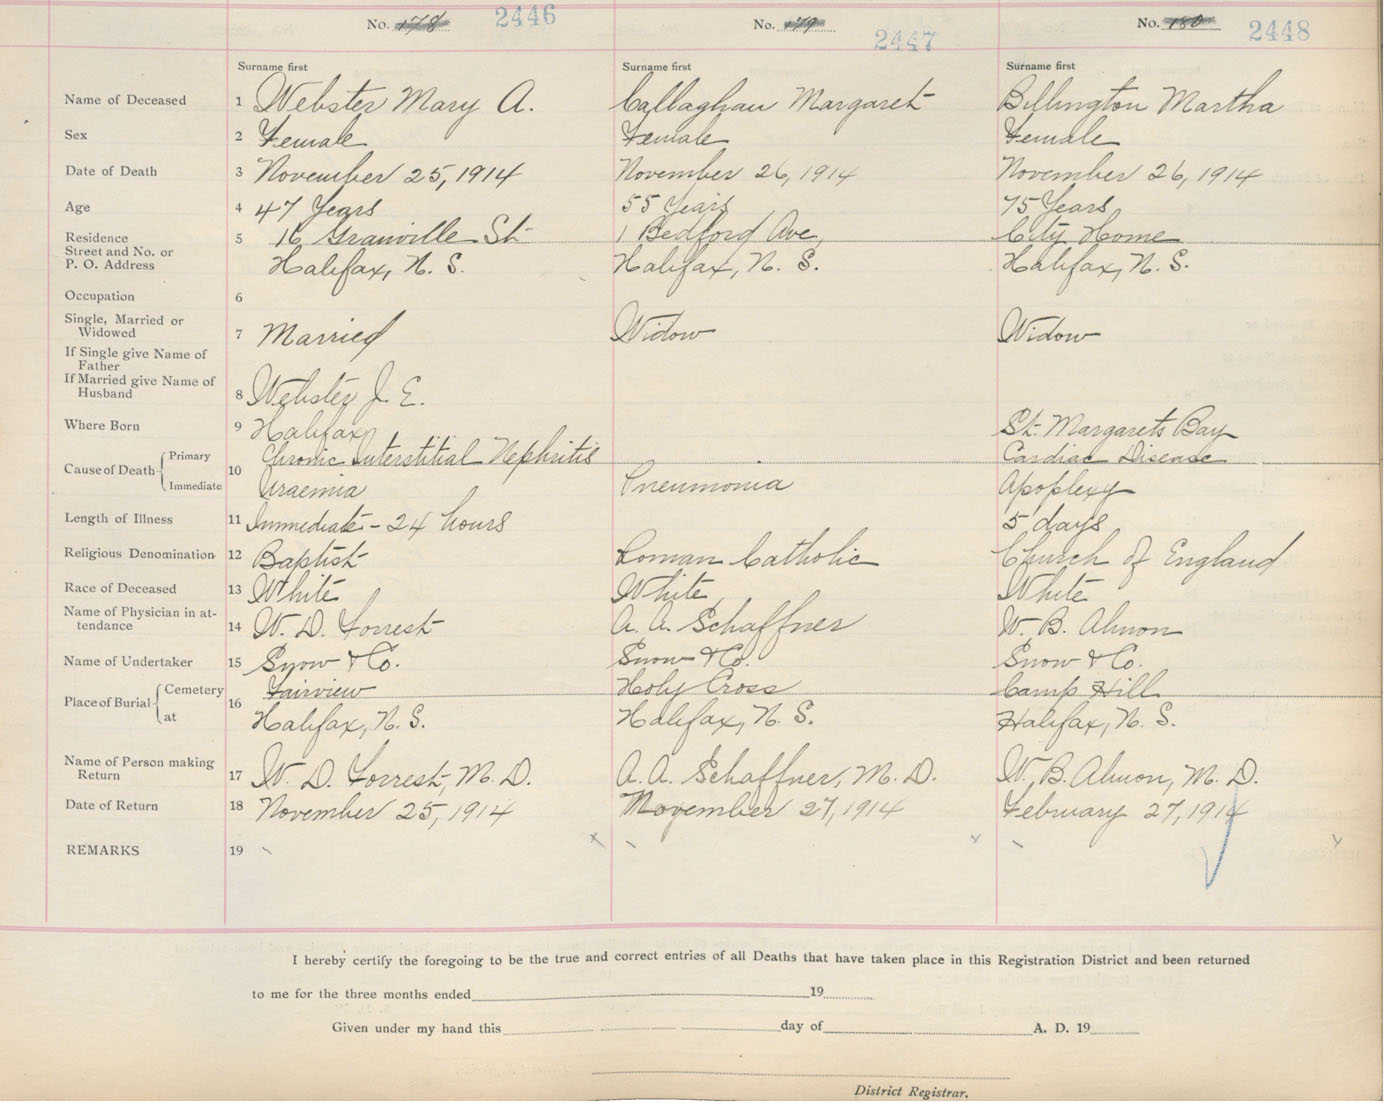 No. 178 2446 No. 179 2447 No. 180 2448
Surname first Surname first Surname first
Name of Deceased 1 Webster Mary A. Callaghan Margaret Billington Martha
Sex 2 Female Female Female
Date of Death 3 November 25, 1914 November 26, 1914 November 26, 1914
Age 4 47 Years 55 Years 75 Years
Residence 5 16 Granville St. 1 Bedford Ave, City Home
Street and No. or
P. O. Address Halifax, N. S. Halifax, N. S. Halifax, N. S.
Occupation 6
Single, Married or
Widowed 7 Married Widow Widow
If Single give Name of
Father
If Married give Name of
Husband 8 Webster J. E.
Where Born 9 Halifax St. Margarets Bay
Cause of Death Primary 10 Chronic Interstitial Nephritis Cardiac Disease
Immediate Uraemia Pneumonia Apoplexy
Length of Illness 11 Immediate - 24 hours 5 days
Religious Denomination 12 Baptist Roman Catholic Church of England
Race of Deceased 13 White White White
Name of Physician in at-
tendance 14 W. D. Forrest A. A. Schaffner W. B. Almon
Name of Undertaker 15 Snow & Co. Snow & Co. Snow & Co.
Place of Burial Cemetery 16 Fairview Holy Cross Camp Hill
at Halifax, N. S. Halifax, N. S. Halifax, N. S.
Name of Person making
Return 17 W. D. Forrest, M. D. A. A. Schaffner, M. D. W. B. Almon, M. D.
Date of Return 18 November 25, 1914 November 27, 1914 February 27, 1914
REMARKS 19
I hereby certify the foregoing to be the true and correct entries of all Deaths that have taken place in this Registration District and been returned
to me for the three months ended 19
Given under my hand this day of A. D. 19
District Registrar.